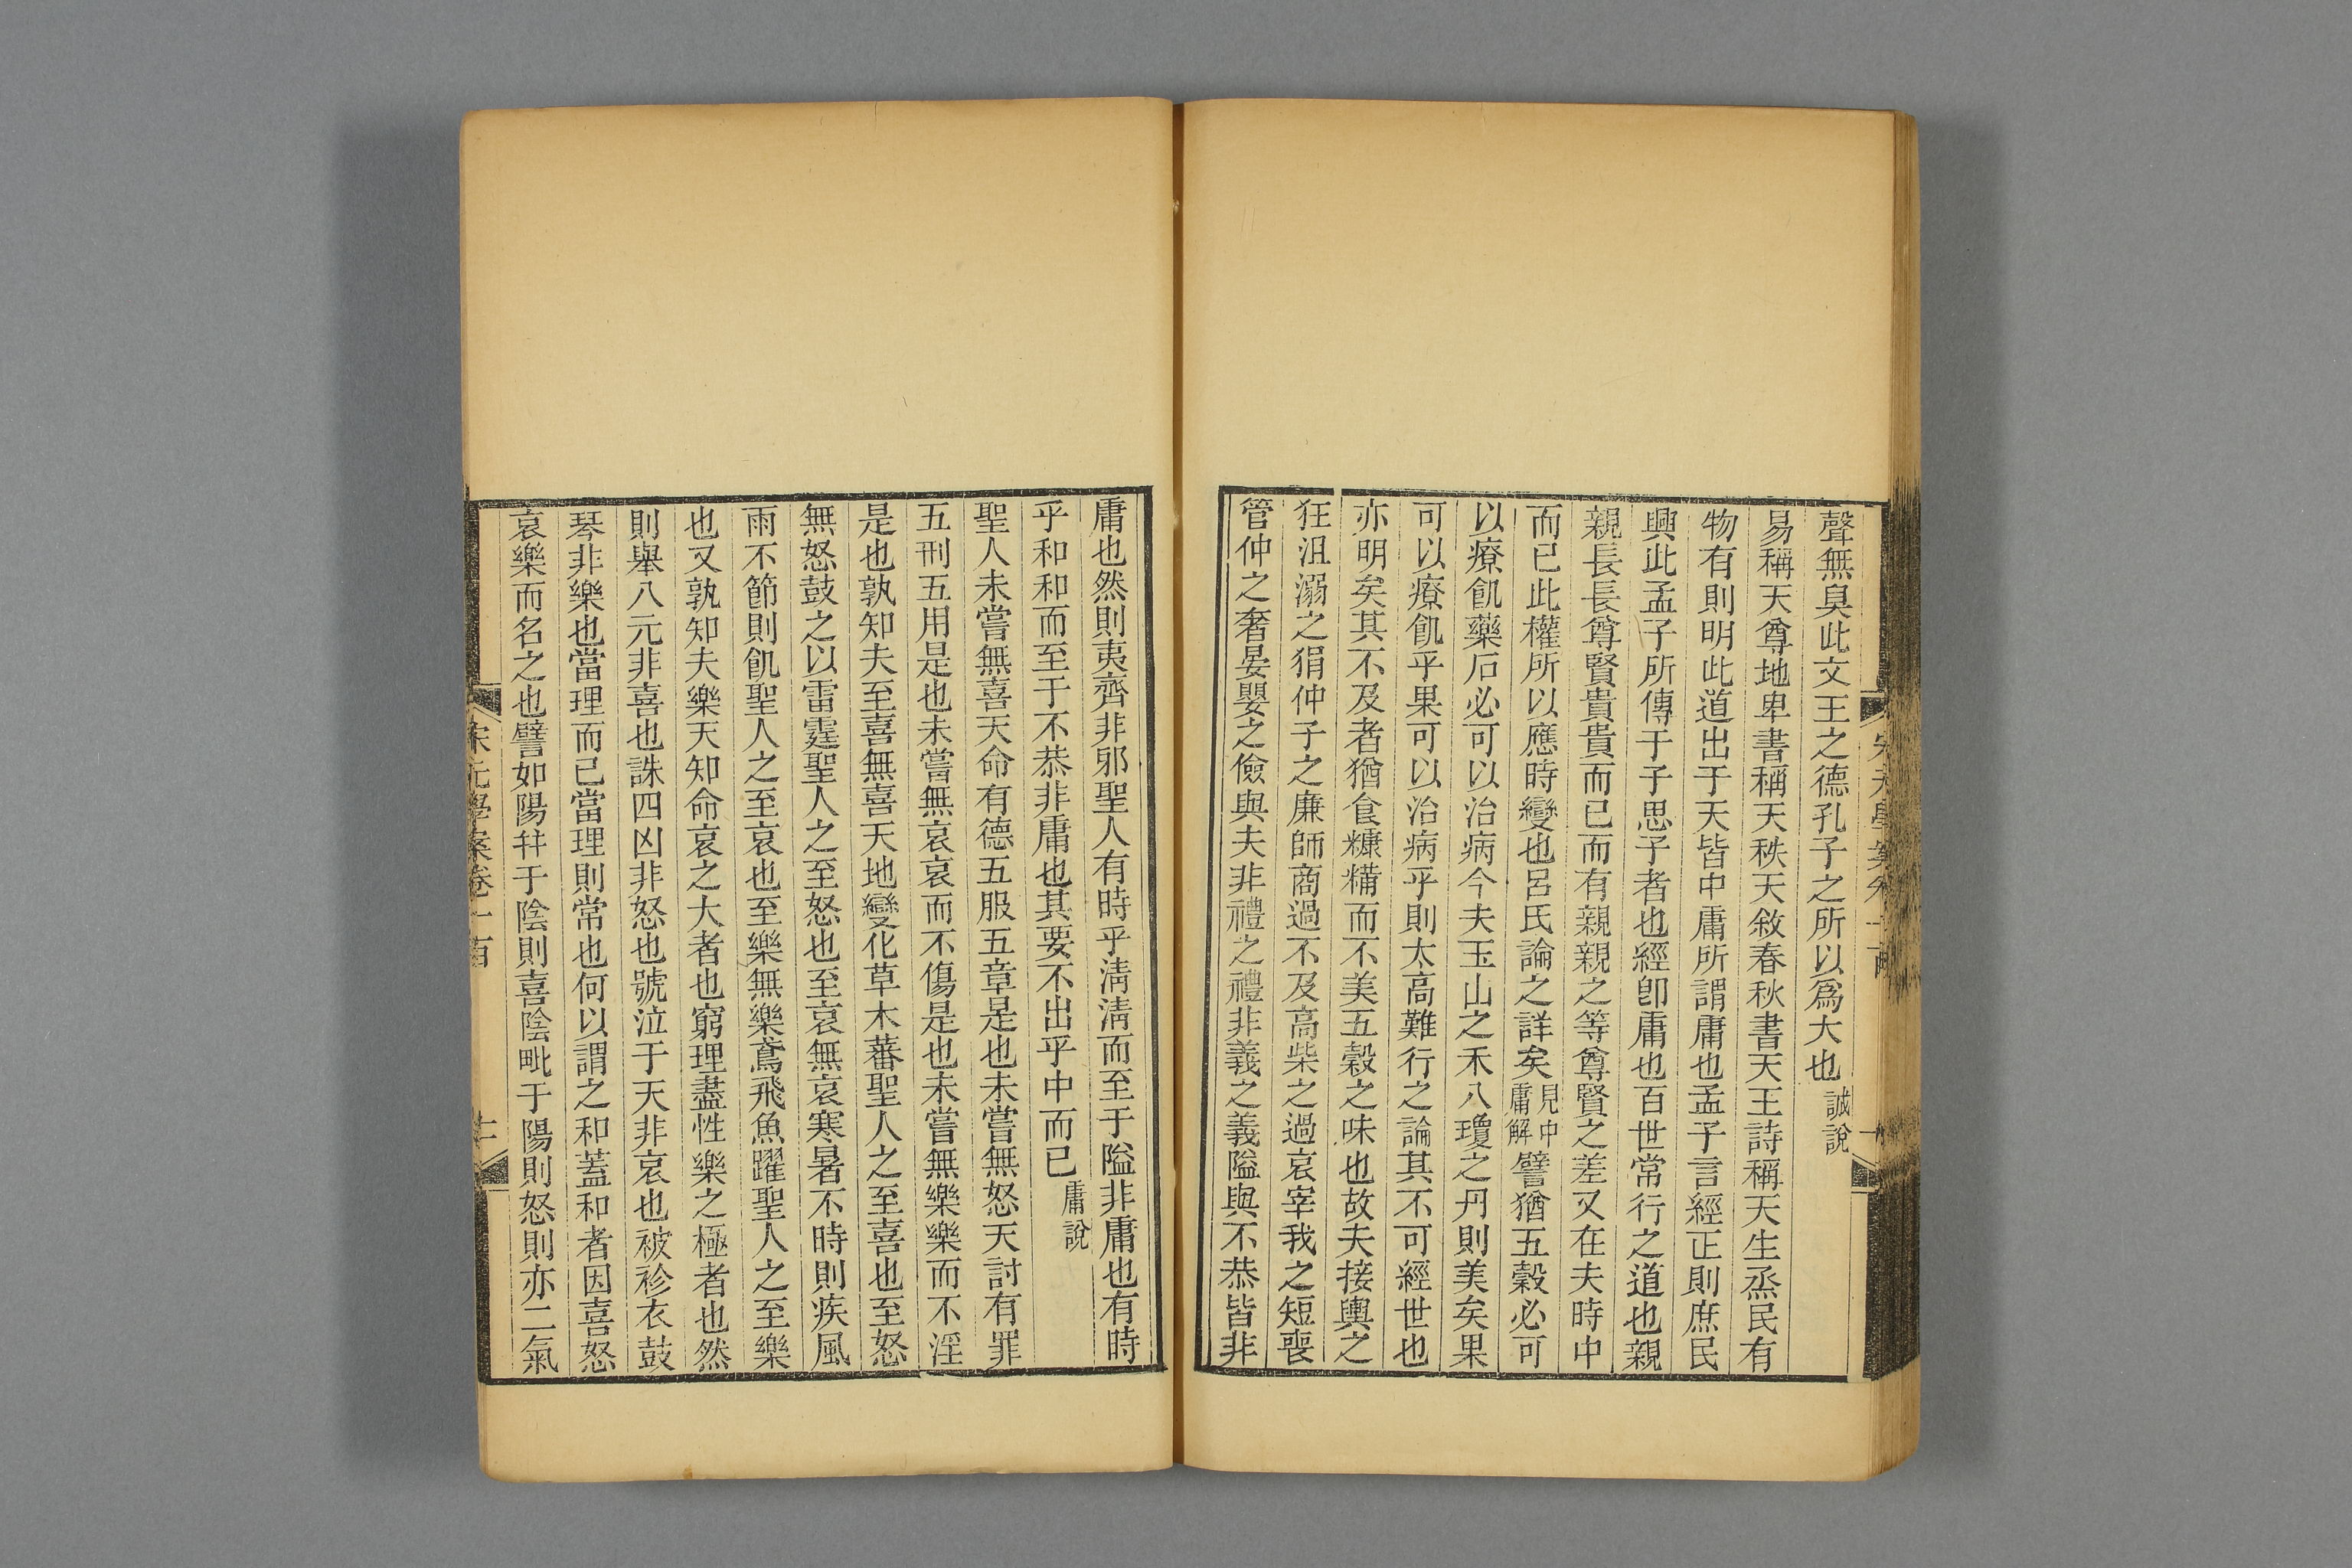 聲無臭此文王之德孔子之所以爲大也誠說
易稱天尊地卑書稱天秩天敘春秋書天王詩稱天生烝民有
物有則明此道出于天皆中庸所謂庸也孟子言經正則庶民
興此孟子所傳于子思子者也經卽庸也百世常行之道也親
親長長尊賢貴貴而已而有親親之等尊賢之差又在夫時中
而已此權所以應時變也呂氏論之詳矣見中庸解譬猶五穀必可
以療飢藥石必可以治病今夫玉山之禾八瓊之丹則美矣果
可以療飢乎果可以治病乎則太高難行之論其不可經世也
亦明矣其不及者猶食糠糒而不美五穀之味也故夫接輿之
狂沮溺之狷仲子之廉師商過不及高柴之過哀宰我之短喪
管仲之奢晏嬰之儉與夫非禮之禮非義之義隘與不恭皆非
庸也然則夷齊非邪聖人有時乎淸淸而至于隘非庸也有時
乎和和而至于不恭非庸也其要不出乎中而已庸說
聖人未嘗無喜天命有德五服五章是也未嘗無怒天討有罪
五刑五用是也未嘗無哀哀而不傷是也未嘗無樂樂而不淫
是也孰知夫至喜無喜天地變化草木蕃聖人之至喜也至怒
無怒鼓之以雷霆聖人之至怒也至哀無哀寒暑不時則疾風
雨不節則飢聖人之至哀也至樂無樂鳶飛魚躍聖人之至樂
也又孰知夫樂天知命哀之大者也窮理盡性樂之極者也然
則舉八元非喜也誅四凶非怒也號泣于天非哀也被袗衣鼓
琴非樂也當理而已當理則常也何以謂之和蓋和者因喜怒
哀樂而名之也譬如陽幷于陰則喜陰毗于陽則怒則亦二氣
宋元學案卷一百